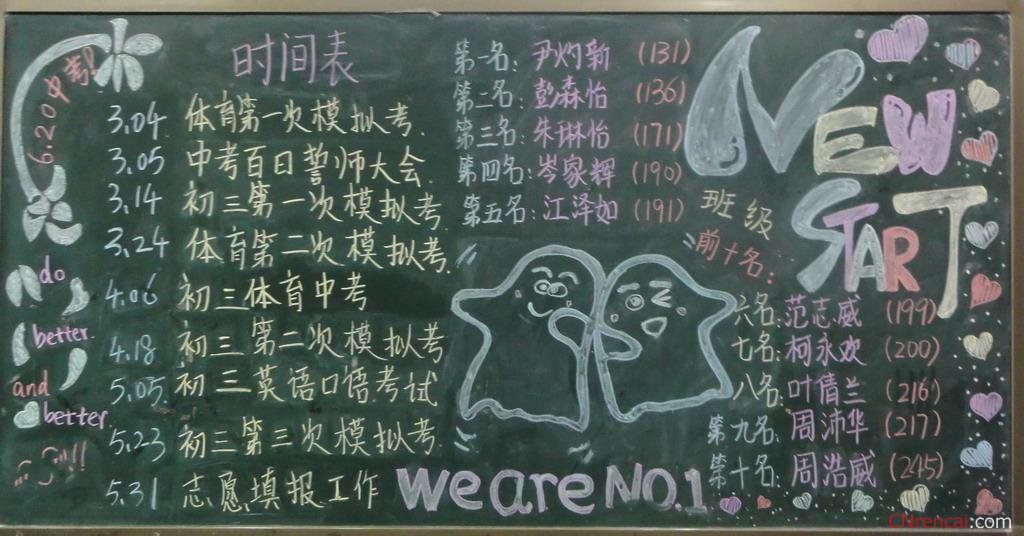 6.20中考!
时间表
3.04 体育第一次模拟考.
3.05 中考百日誓师大会
3.14 初三第一次模拟考.
3.24 体育第二次模拟考.
4.06 初三体育中考
4.18 初三第二次模拟考
5.05 初三英语口语考试
5.23 初三第三次模拟考.
5.31 志愿填报工作
do
better.
and
better.
第一名: 尹灼新 (131)
第二名: 彭森怡 (136)
第三名: 朱琳怡 (171)
第四名: 岑家辉 (190)
第五名: 江泽如 (191)
NEW
START
班级
前十名:
六名: 范志威 (199)
七名: 柯永欢 (200)
八名: 叶倩兰 (216)
第九名: 周沛华 (217)
第十名: 周浩威 (245)
we are NO.1
CNrencai.com